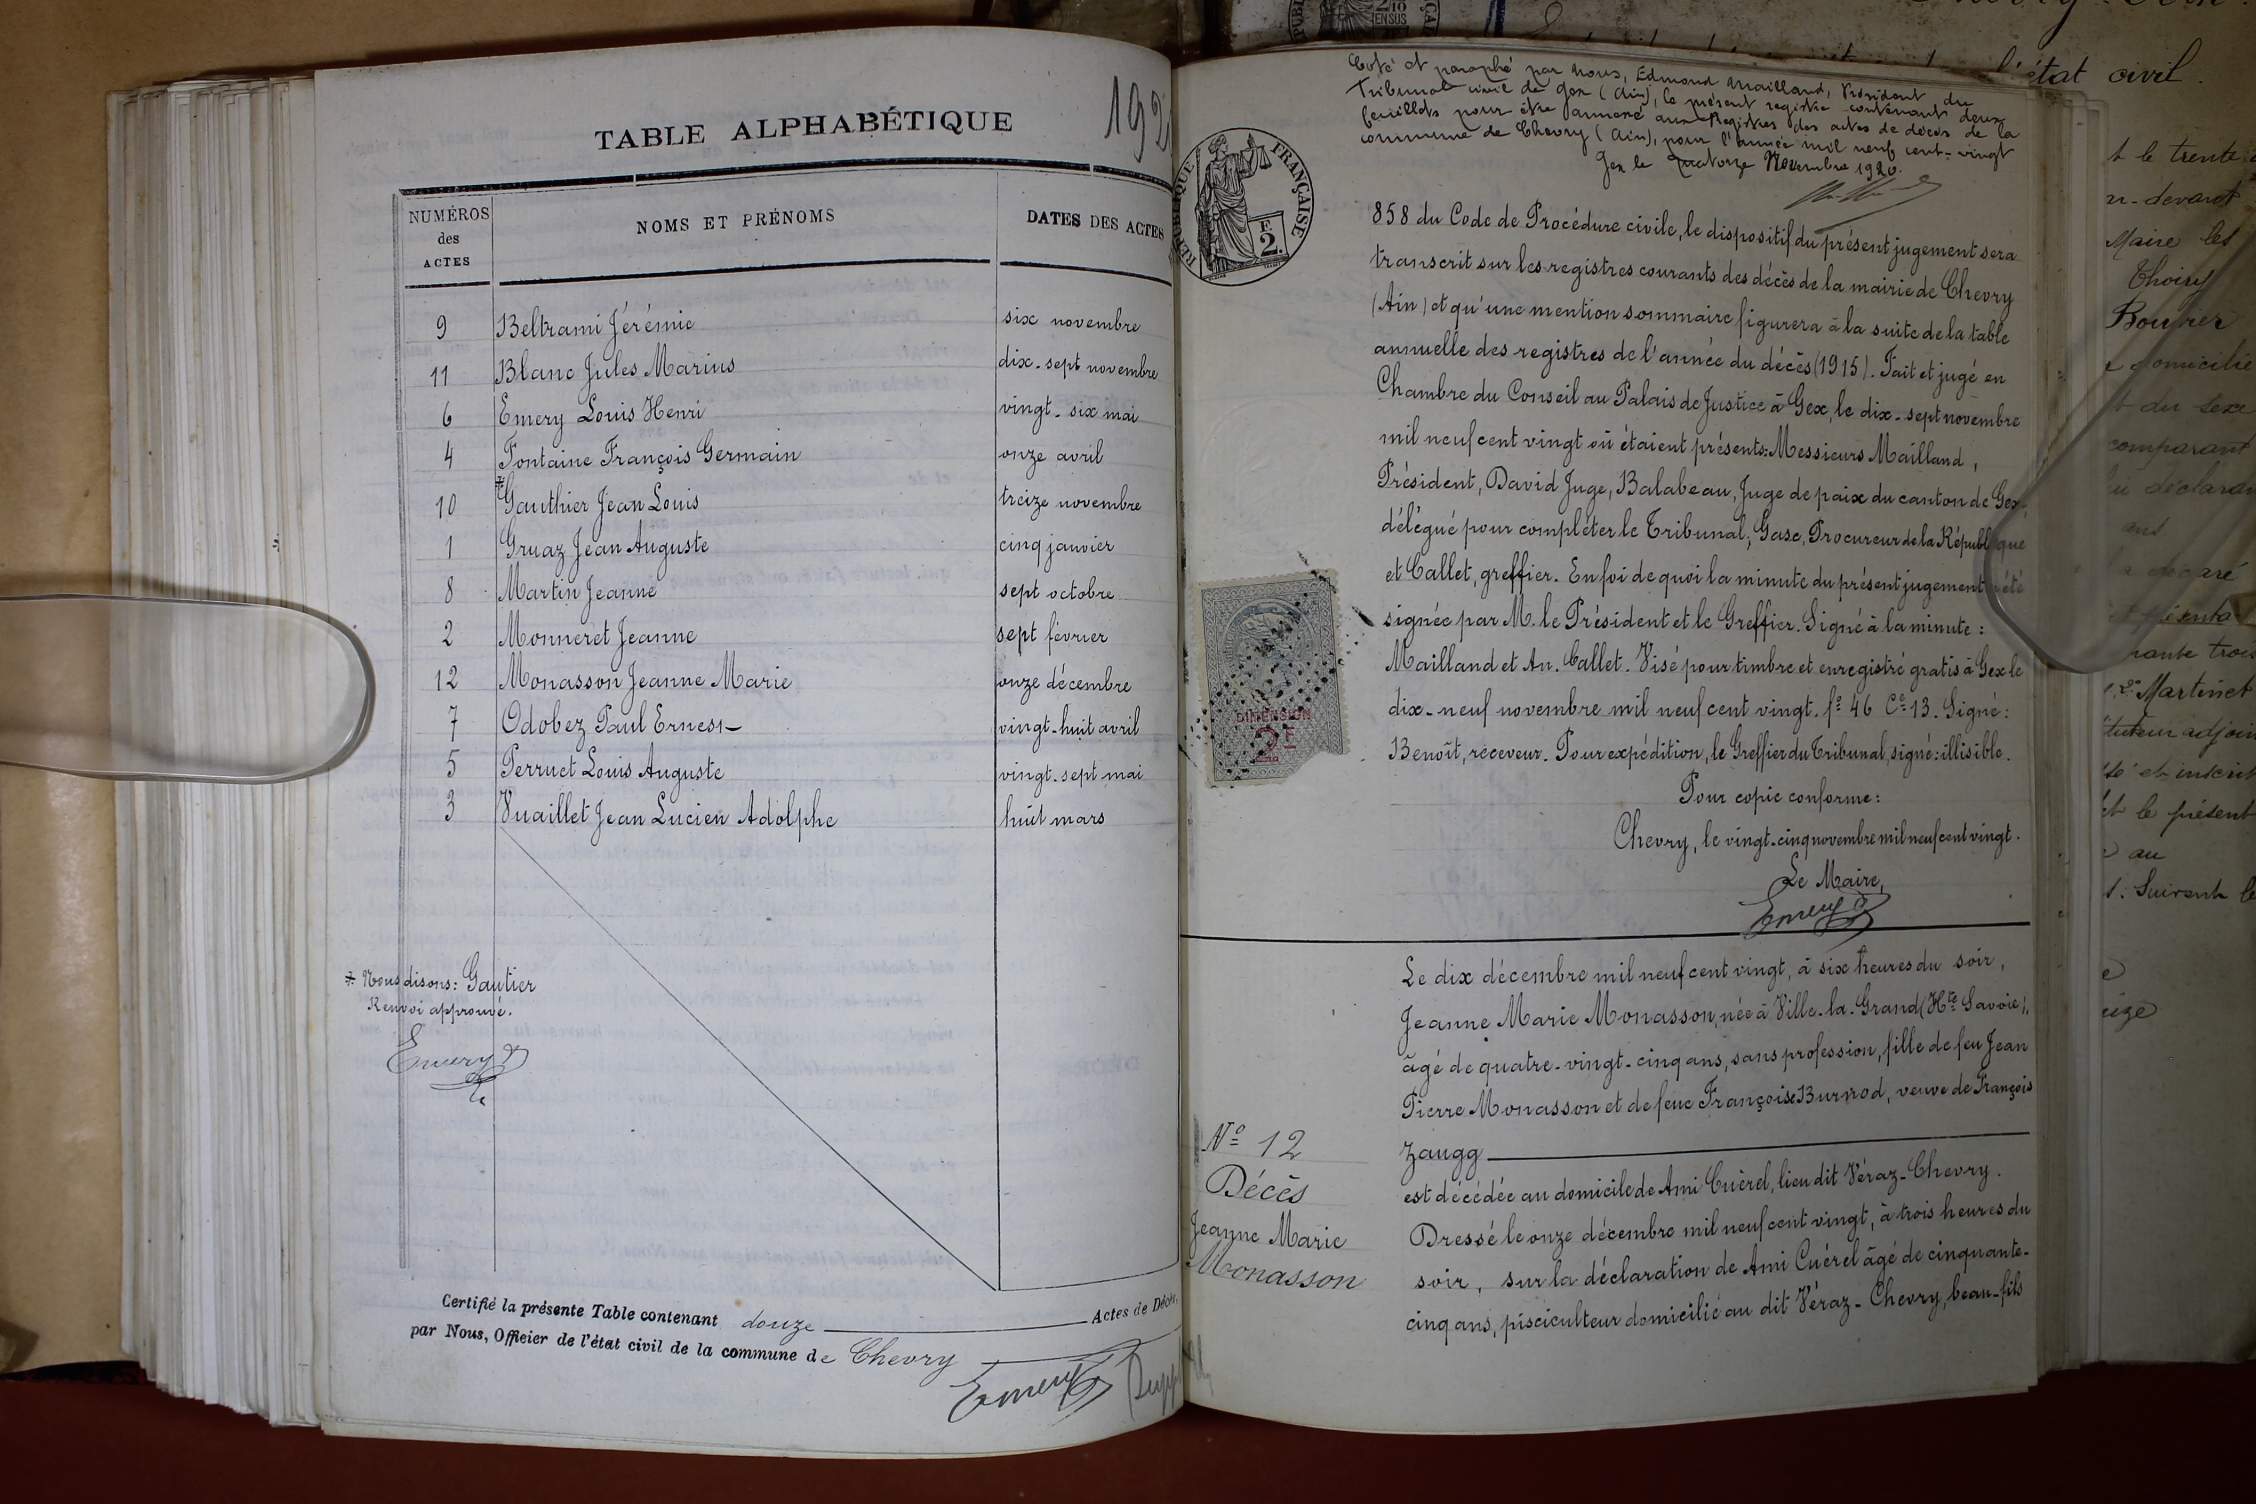 TABLE ALPHABÉTIQUE
192
NUMÉROS des ACTES
NOMS ET PRÉNOMS
DATES DES ACTES
9 Beltrami Jérémie six novembre
11 Blanc Jules Marius dix-sept novembre
6 Emery Louis Henri vingt-six mai
4 Fontaine François Germain onze avril
10 Gauthier Jean Louis treize novembre
1 Gruaz Jean Auguste cinq janvier
8 Martin Jeanne sept octobre
2 Monneret Jeanne sept février
12 Monasson Jeanne Marie onze décembre
7 Odobez Paul Ernest vingt-huit avril
5 Perruet Louis Auguste vingt-sept mai
3 Vuaillet Jean Lucien Adolphe huit mars
Nous disons: Gautier
Renvoi approuvé.
Emery
Certifié la présente Table contenant douze Actes de Décès,
par Nous, Officier de l'état civil de la commune de Chevry
Emery
Coté et paraphé par nous, Edmond Mailland, Président du
Tribunal civil de Gex (Ain), le présent registre contenant deux
feuillets pour être annexé aux Registres des actes de décès de la
commune de Chevry (Ain), pour l'année mil neuf cent-vingt
Gex le quatorze Novembre 1920.
RÉPUBLIQUE FRANÇAISE
F. 2.
858 du Code de Procédure civile, le dispositif du présent jugement sera
transcrit sur les registres courants des décès de la mairie de Chevry
(Ain) et qu'une mention sommaire figurera à la suite de la table
annuelle des registres de l'année du décès (1915). Fait et jugé en
Chambre du Conseil au Palais de Justice à Gex, le dix-sept novembre
mil neuf cent vingt où étaient présents: Messieurs Mailland,
Président, David Juge, Balabeau, Juge de paix du canton de Gex,
délégué pour compléter le Tribunal; Gasc, Procureur de la République
et Callet, greffier. En foi de quoi la minute du présent jugement a été
signée par M. le Président et le Greffier. Signé à la minute:
Mailland et An. Callet. Visé pour timbre et enregistré gratis à Gex le
dix-neuf novembre mil neuf cent vingt. f° 46 Ce 13. Signé:
Benoît, receveur. Pour expédition, le Greffier du Tribunal, signé: illisible.
DIMENSION
2F
Pour copie conforme:
Chevry, le vingt-cinq novembre mil neuf cent vingt.
Le Maire,
Emery
Le dix décembre mil neuf cent vingt, à six heures du soir,
Jeanne Marie Monasson, née à Ville-la-Grand (Hte Savoie),
âgé de quatre-vingt-cinq ans, sans profession, fille de feu Jean
Pierre Monasson et de feue Françoise Burnod, veuve de François
Zaugg
est décédée au domicile de Ami Cuérel, lieu dit Véraz-Chevry.
Dressé le onze décembre mil neuf cent vingt, à trois heures du
soir, sur la déclaration de Ami Cuérel âgé de cinquante-
cinq ans, pisciculteur domicilié au dit Véraz-Chevry, beau-fils
N° 12
Décès
Jeanne Marie
Monasson
l'état civil.
le trente
devant
Maire
Choisy
domicilié
du sexe
comparant
déclaré
trois
Martinet
adjoint
et inscrit
le présent
au
Suivent le